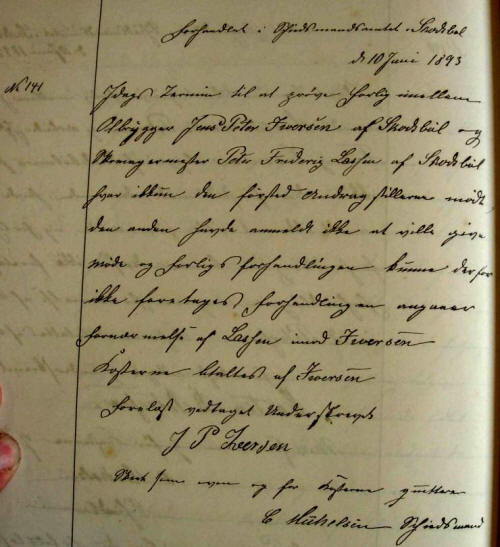 Forhandlet i Schiedsmandsamtet Skodsbøl
d: 10 Juni 1893
No 141
Idags Termin til at prøve Forlig imellem
Olbrygger Jens Peter Iversen af Skodsbøl og
Skomagermester Peter Friderig Lassen af Skodsbøl
hvor ikkun den førsted Andragstillerne mødt
den anden havde anmeldt ikke at ville give
møde og Forligsforhandlingen kunne derfor
ikke foretages Forhandlingen angaaer
fornærmelse af Lassen imod Iversen
Kosterne btaltes af Iversen
Forelæst vedtaget Underskrevet
J P Iversen
som oven og for Kosterne quitterer
C Schiedsmand